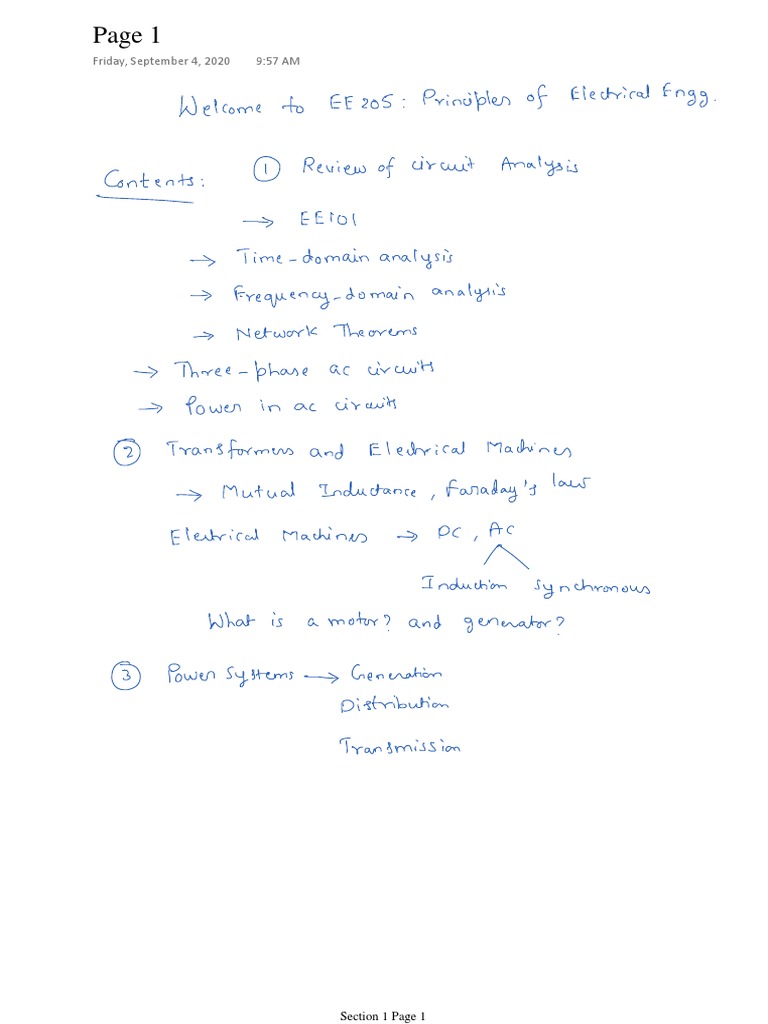 Page 1
Friday, September 4, 2020 9:57 AM
Welcome to EE205: Principles of Electrical Engg.
Contents: ① Review of circuit Analysis
→ EE101
→ Time-domain analysis
→ Frequency-domain analysis
→ Network Theorems
→ Three-phase ac circuits
→ Power in ac circuits
② Transformers and Electrical Machines
→ Mutual Inductance, Faraday's laws
Electrical Machines → DC, AC
Induction Synchronous
What is a motor? and generator?
③ Power Systems → Generation
Distribution
Transmission
Section 1 Page 1